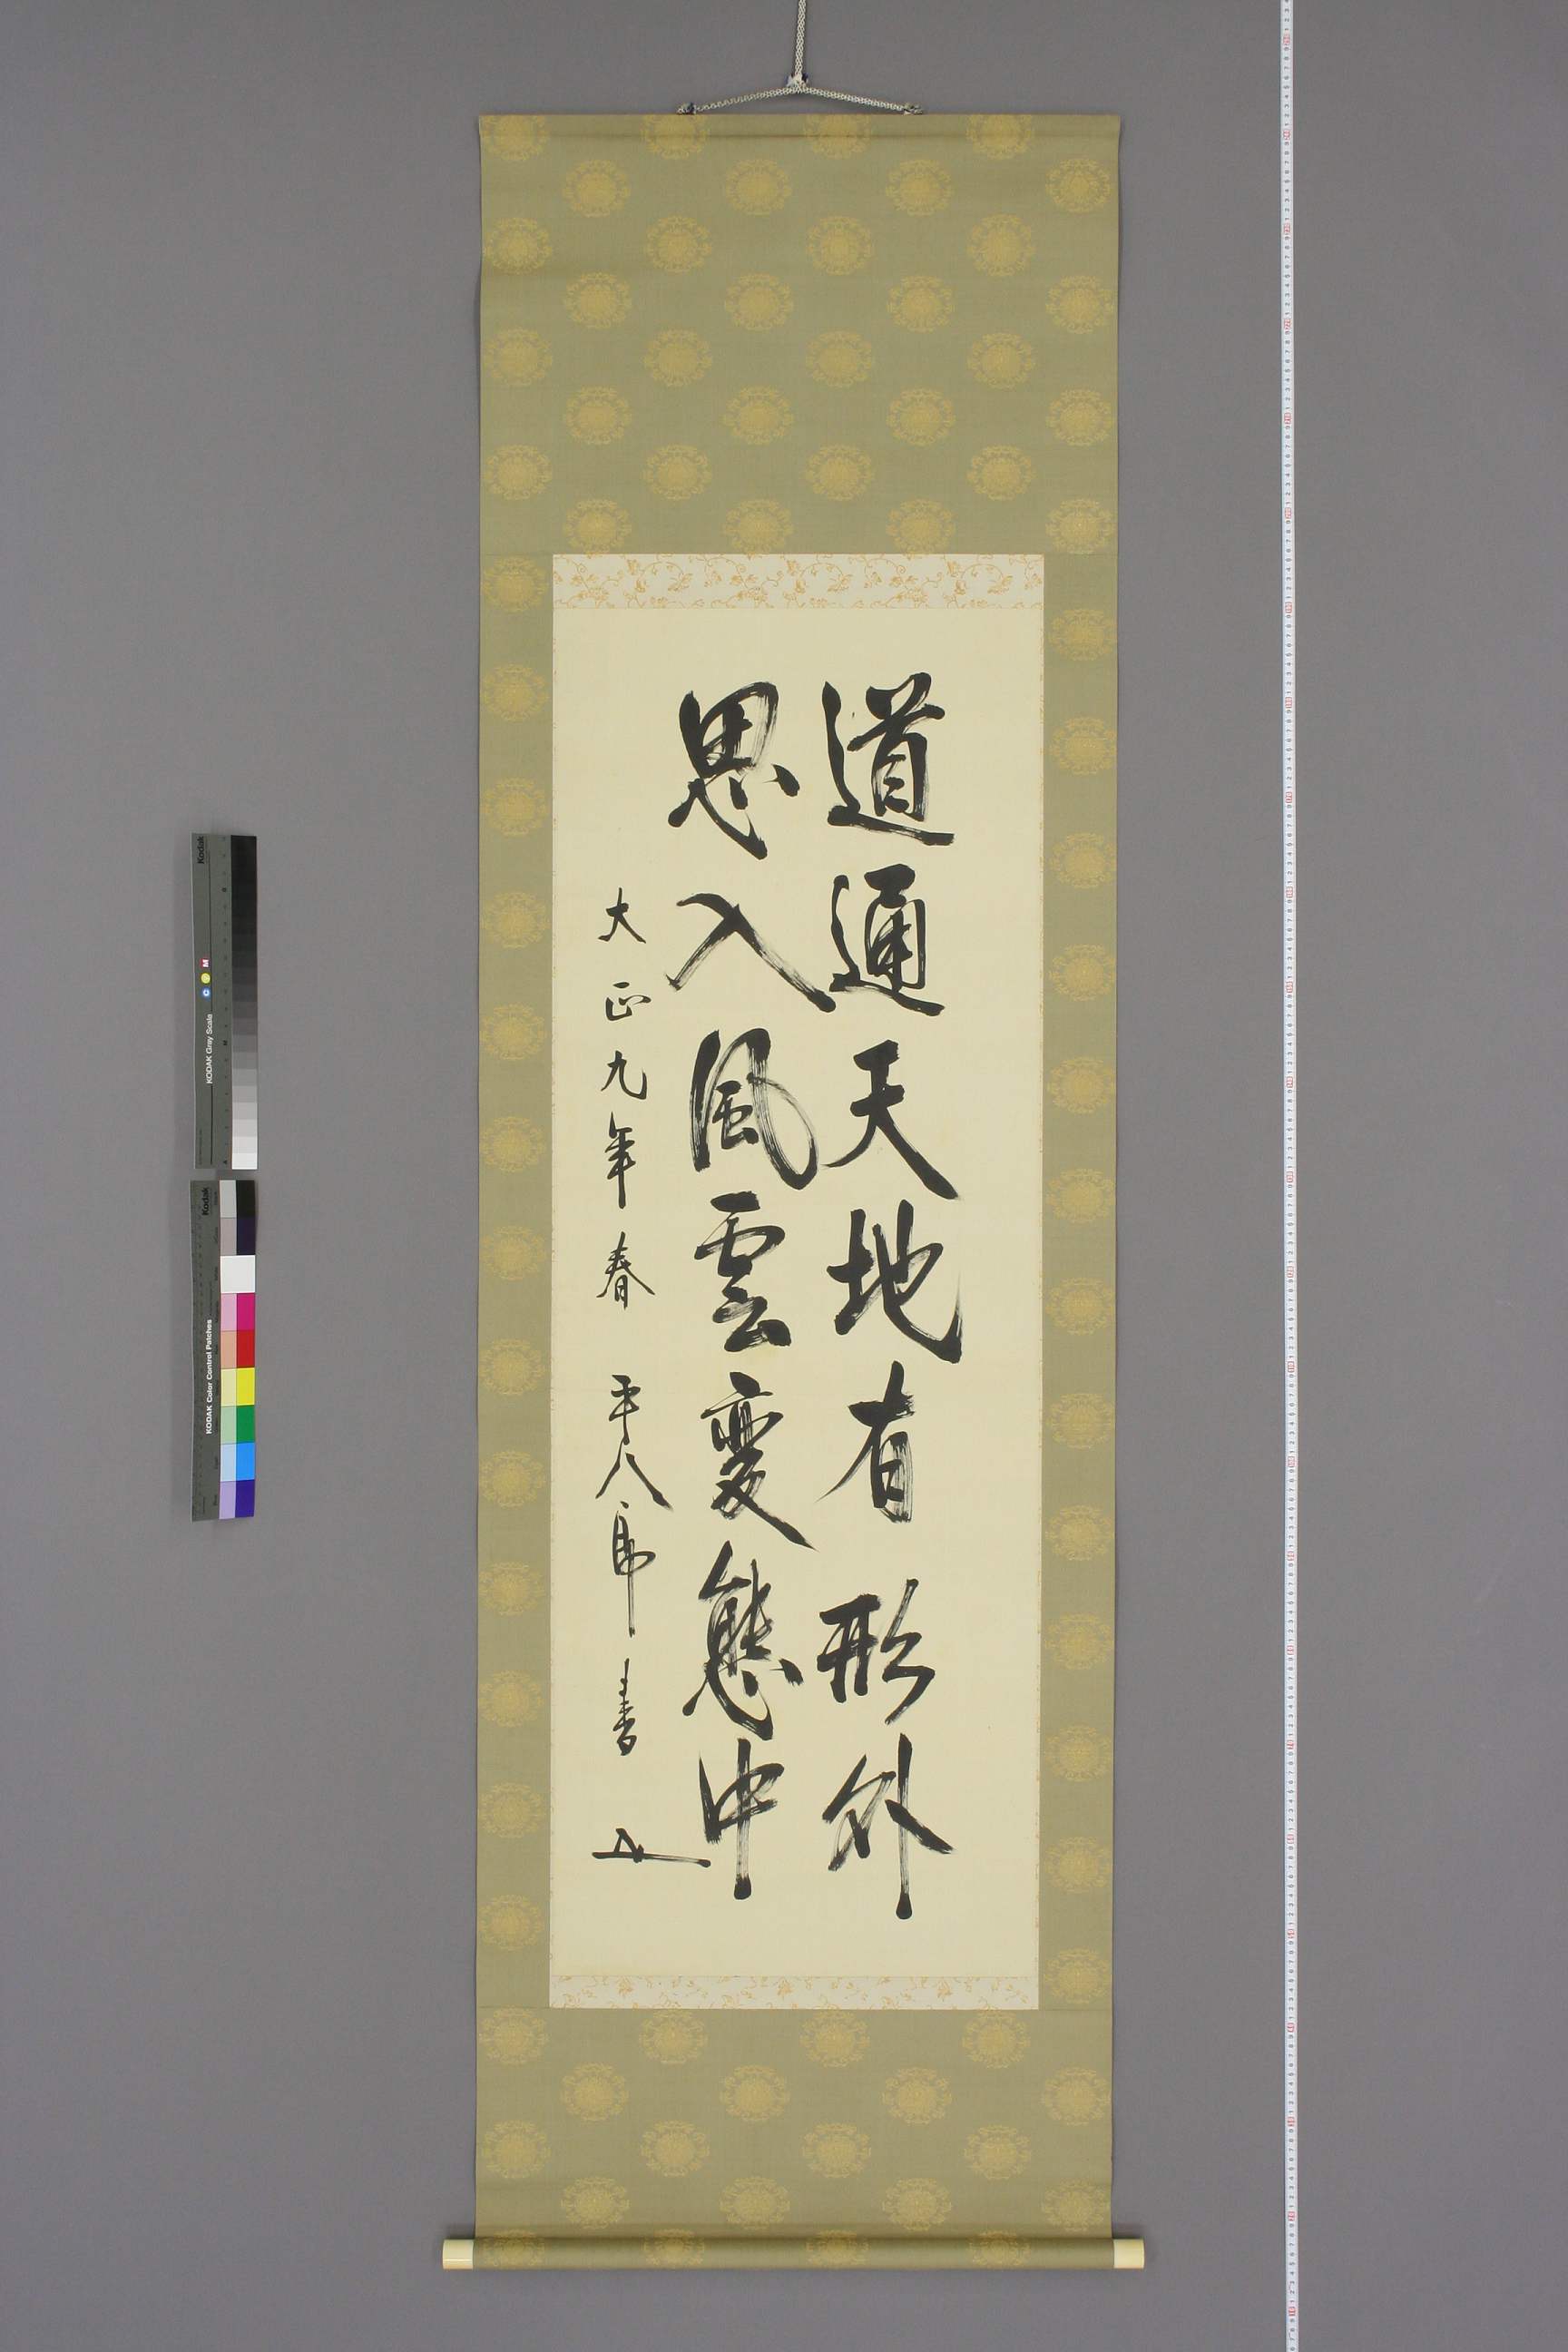 道通天地有形外
思入風雲變態中
大正九年春 平八郎書
KODAK Gray Scale
C Y M
Kodak
KODAK Color Control Patches
Kodak